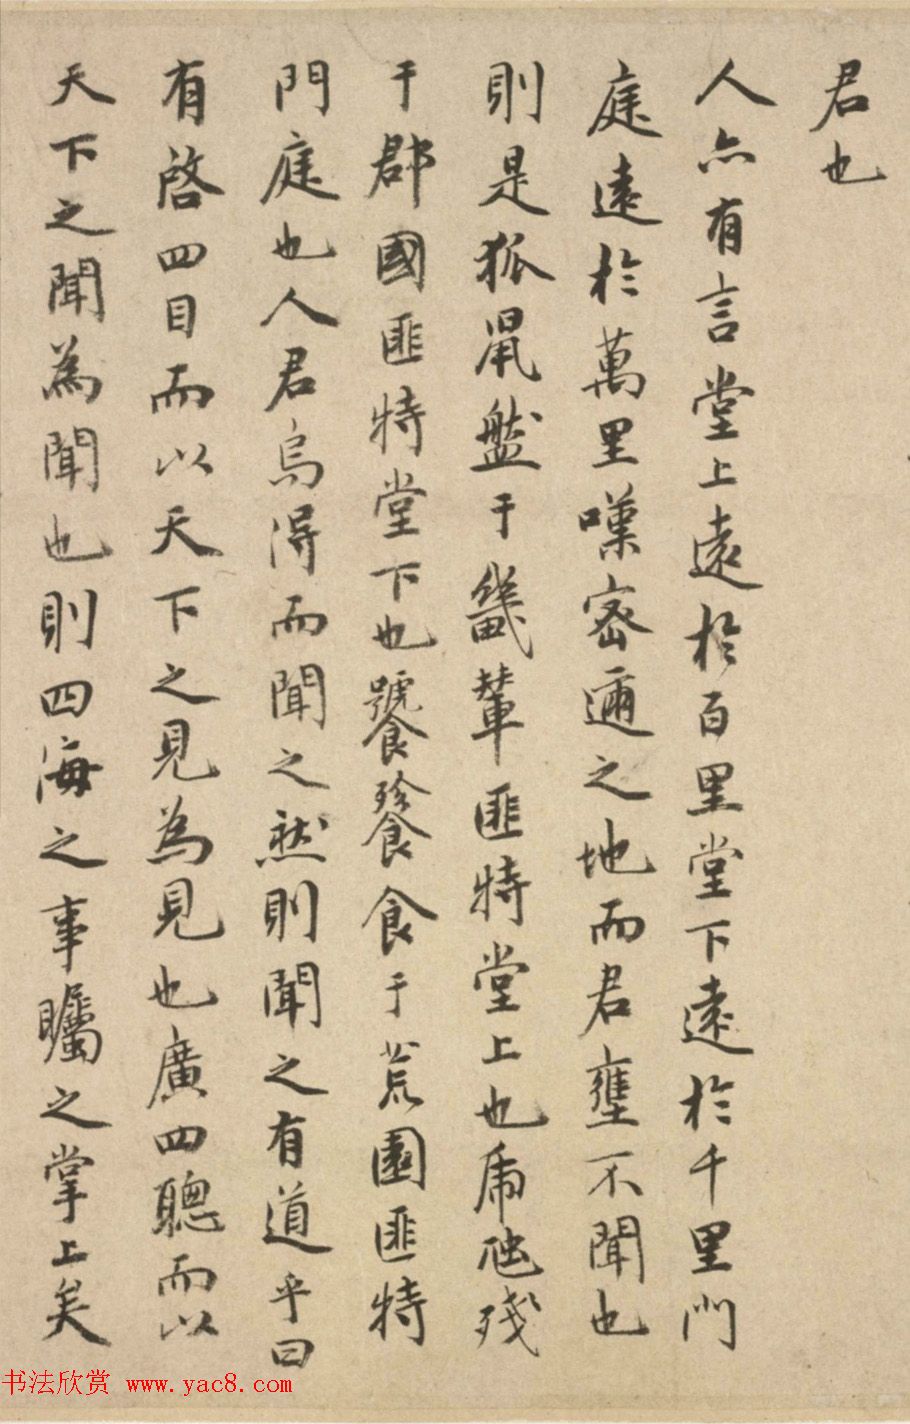 君也
人亦有言堂上遠於百里堂下遠於千里門
庭遠於萬里嘆密邇之地而君壅不聞也
則是狐鼠盤于畿輦匪特堂上也虎虺殘
于郡國匪特堂下也饕餮食于荒圉匪特
門庭也人君烏得而聞之然則聞之有道乎曰
有啓四目而以天下之見為見也廣四聰而以
天下之聞為聞也則四海之事矚之掌上矣
书法欣赏 www.yac8.com